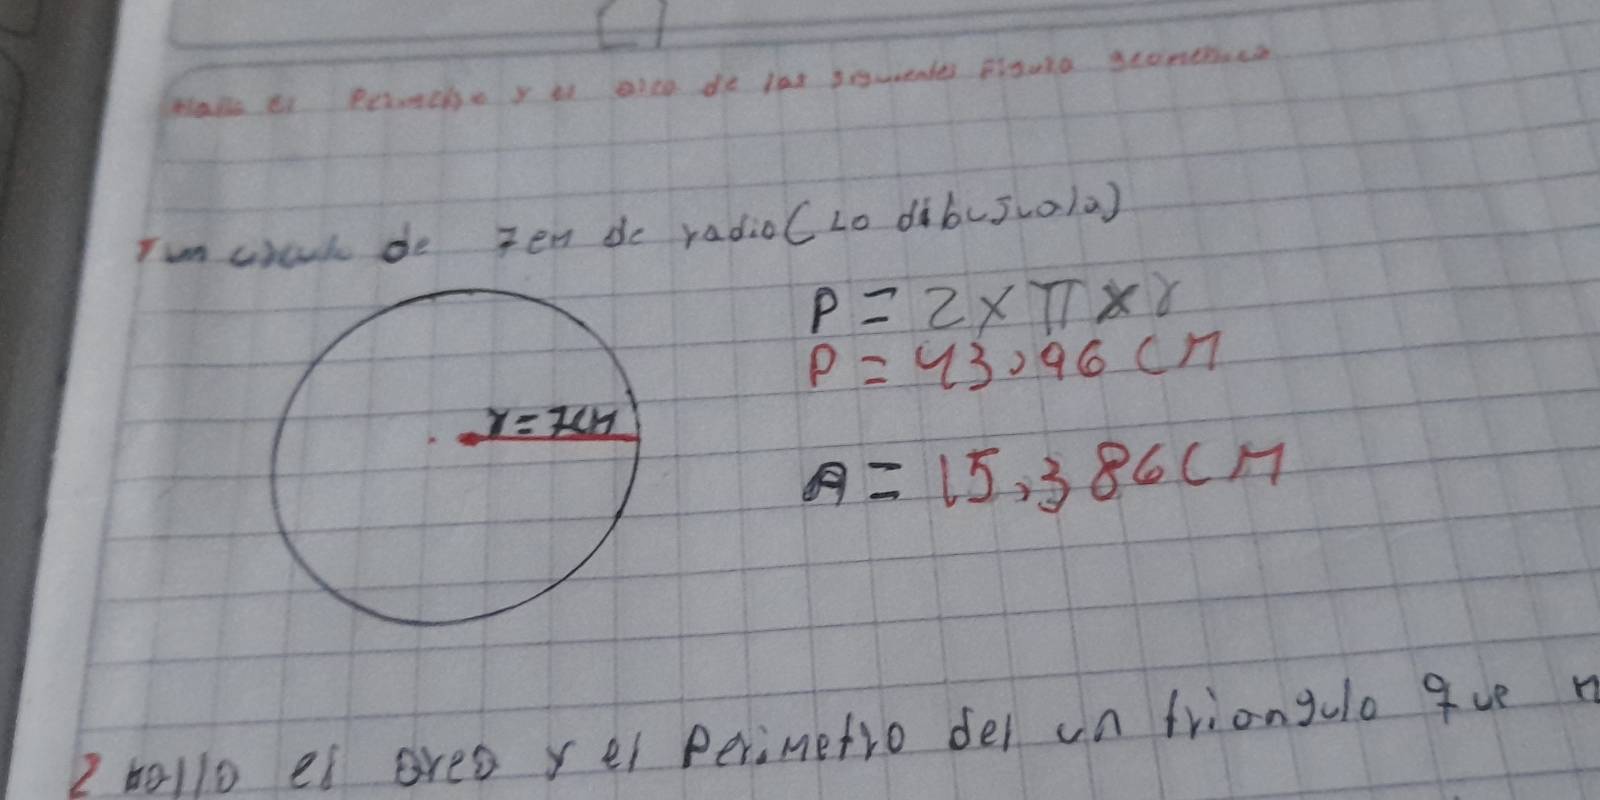 Halla el Perimetro y el area de las siguientes Figura geometrica
1 un circulo de 7cm de radio (Lo dibujuala)
P = 2 x π x r
P = 43,96 CM
r = 7CM
A = 15,386CM
2 hallo el area y el Perimetro del un triangulo que